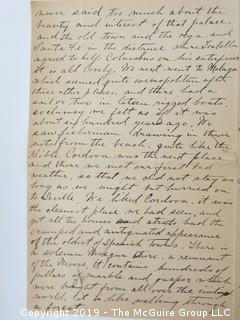 never said too much about the
beauty and interest of that palace,
and the old town and the vega, and
Santa Fe in the distance where Isabella
agreed to help Columbus on his enterprise
It is all lovely. We next went to Malaga
which seemed quite cosmopolitan after the
three other places, and there had a
sail or two in lateen rigged boats.
so clumsy we felt as if it was
about an hundred years ago. We
saw fishermen drawing in their
nets from the beach, quite like the
Bible. Cordova was the next place
and there we met our first bad
weather, so that we did not stay as
long as we might but hurried on
to Seville. We liked Cordova, it was
the cleanest place we had seen, and
yet all the houses and streets had the
cramped and antiquated appearance
of the oldest of Spanish towns. There is
a solemn Mosque there, a remnant
of the Moors. It contains hundreds of
pillars of marble and jasper which
were brought from all over the
world. It is like walking through
a forest
Copyright 2019 - TimePiecesUSA.com